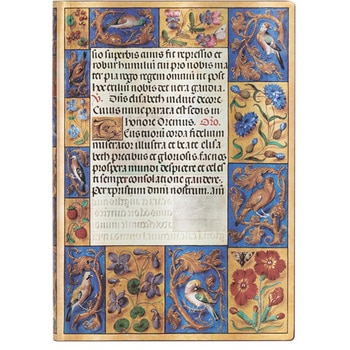 sio superbus aīnus sit repressio et
robur humiliū tu pro nobis ma
ter pia rogo regem omniū ut post
hec exilii nobis det vera gaudia.
V. Dn̄s elisabeth induit decore
Cuius nunc parata est sedis in
honore Oremus. Oro.
Tuorum corda fidelium
miserator illustra et beate elisa
beth precibus et gloriosis fac nos
prospera mundi despicere et celes
ti semper consolatione gaudere.
Per xp̄istum dn̄m nostrum. am̄.